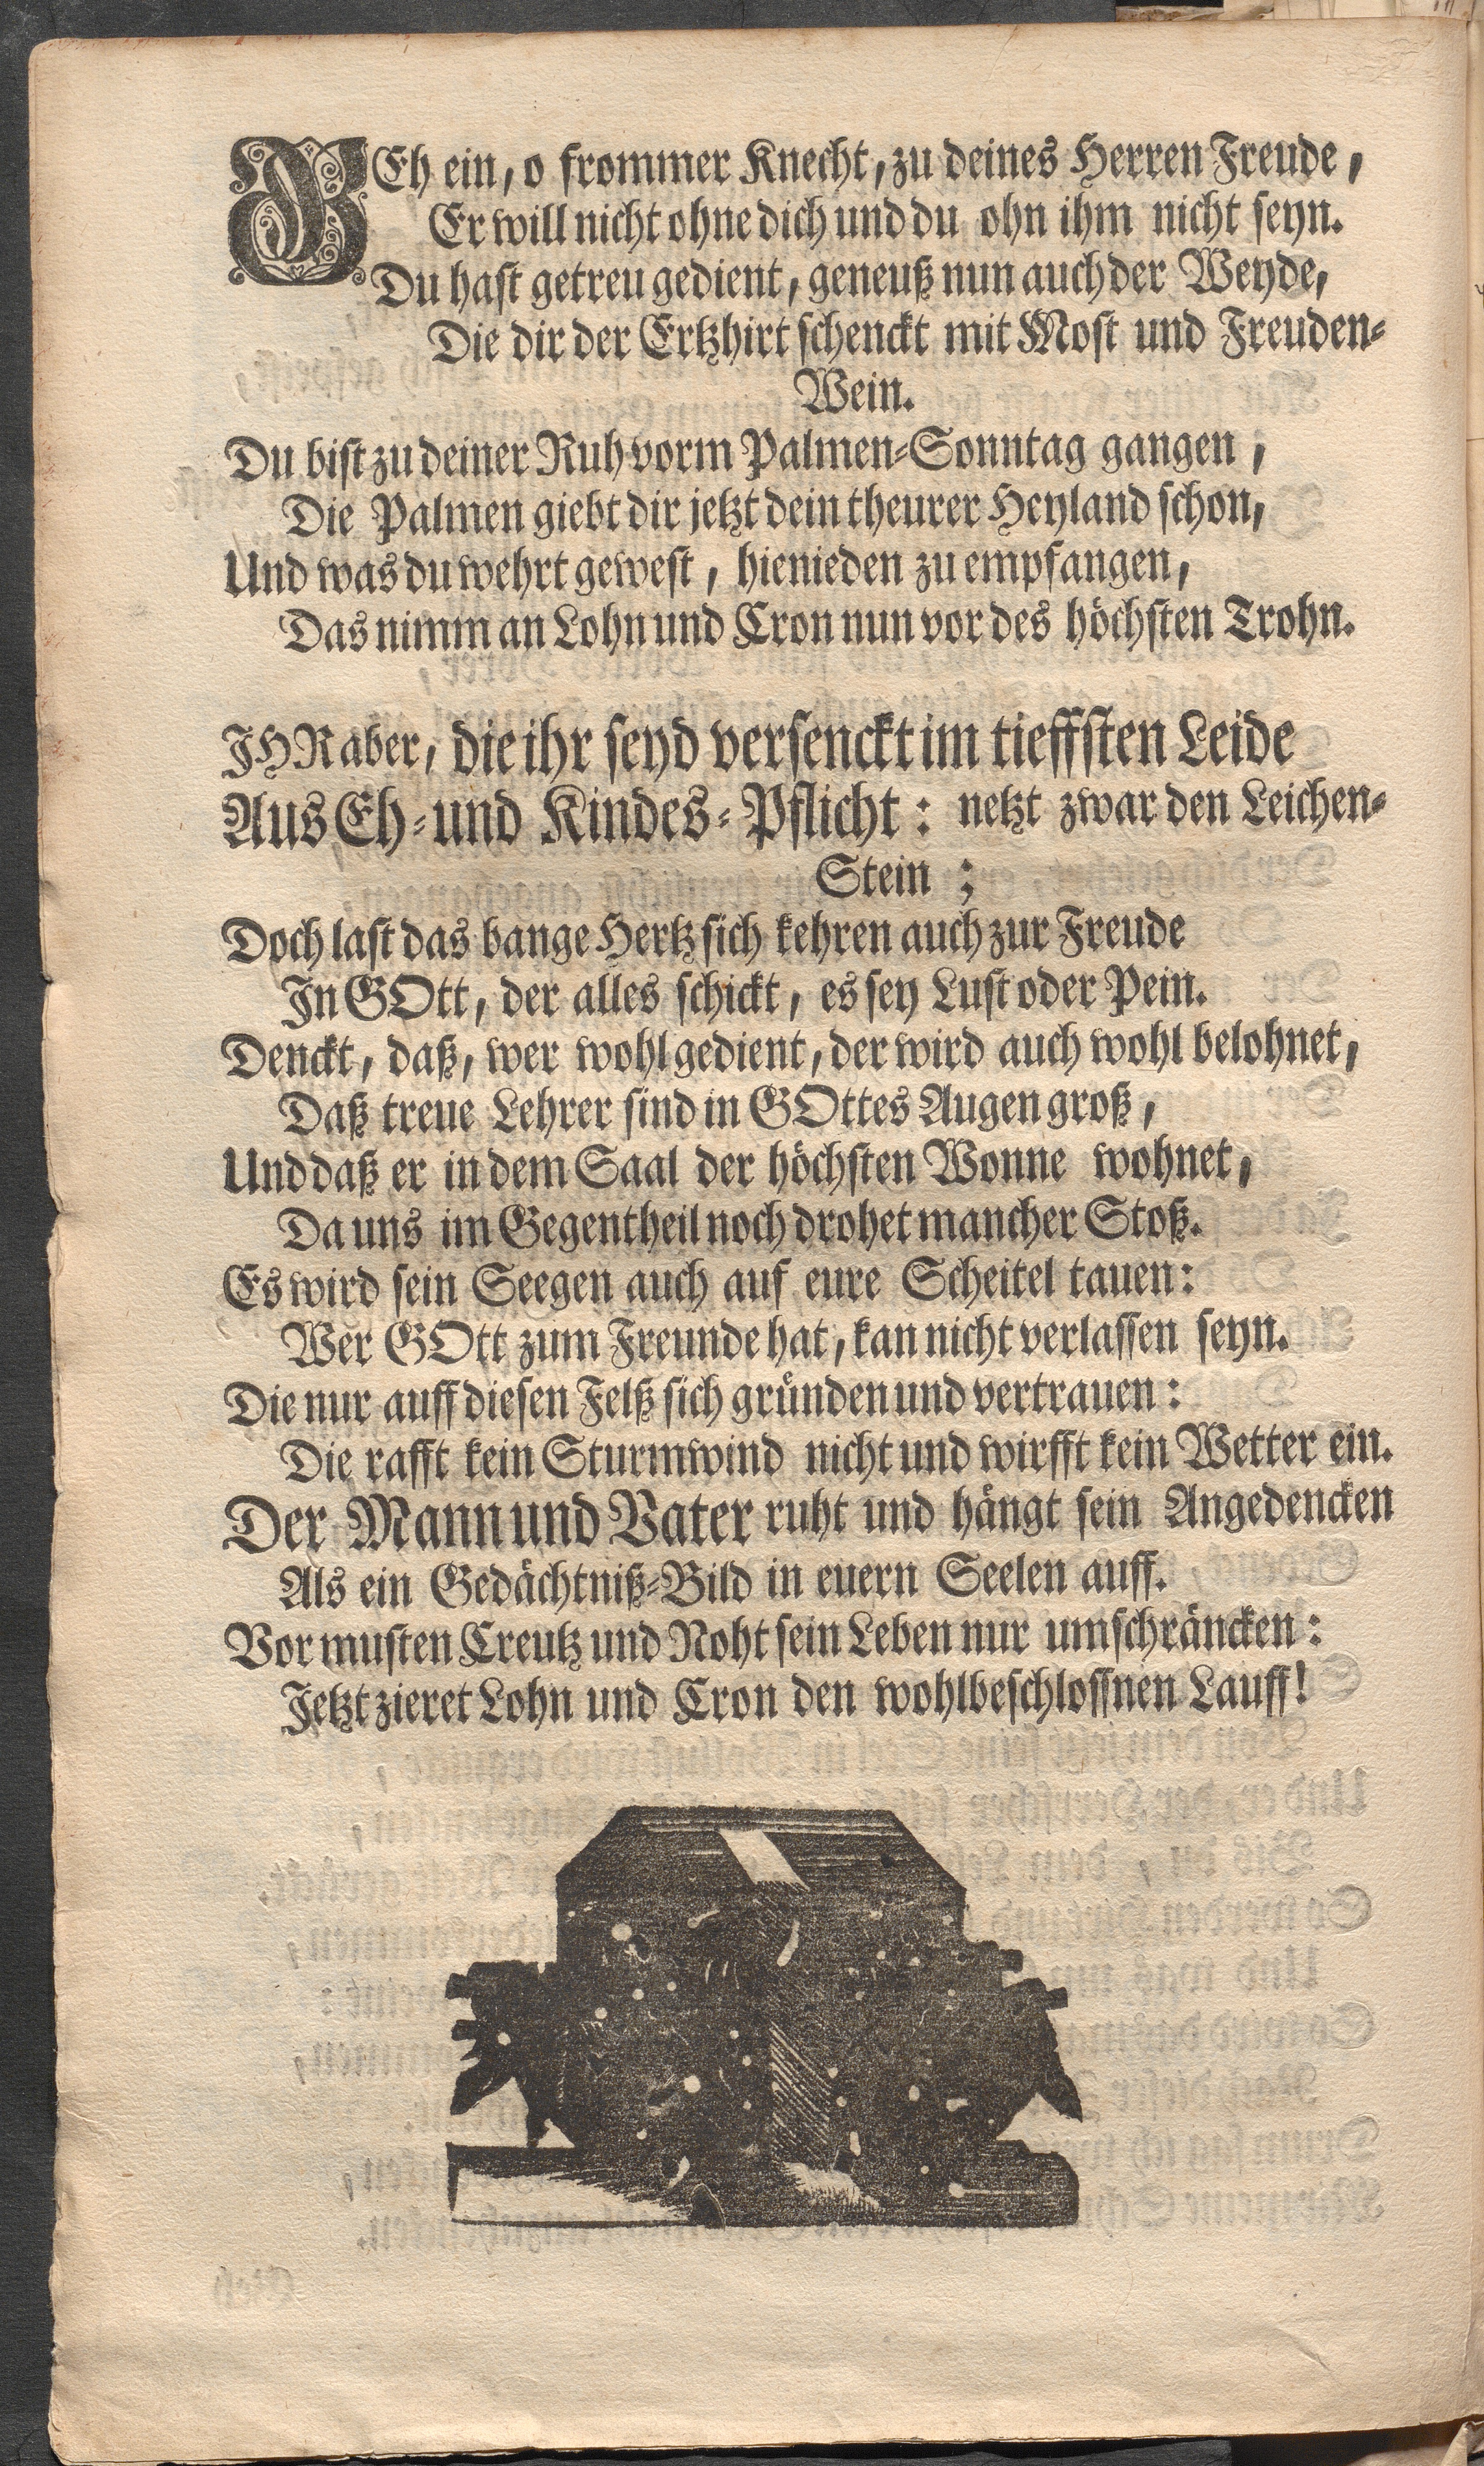 GEh ein, o frommer Knecht, zu deines Herren Freude,
Er will nicht ohne dich und du ohn ihm nicht seyn.
Du hast getreu gedient, geneuß nun auch der Weyde,
Die dir der Ertzhirt schenckt mit Most und Freuden-
Wein.
Du bist zu deiner Ruh vorm Palmen-Sonntag gangen,
Die Palmen giebt dir jetzt dein theurer Heyland schon,
Und was du wehrt gewest, hienieden zu empfangen,
Das nimm an Lohn und Cron nun vor des höchsten Trohn.
JHR aber, die ihr seyd versenckt im tieffsten Leide
Aus Eh- und Kindes-Pflicht: netzt zwar den Leichen-
Stein;
Doch last das bange Hertz sich kehren auch zur Freude
In GOtt, der alles schickt, es sey Lust oder Pein.
Denckt, daß, wer wohl gedient, der wird auch wohl belohnet,
Daß treue Lehrer sind in GOttes Augen groß,
Und daß er in dem Saal der höchsten Wonne wohnet,
Da uns im Gegentheil noch drohet mancher Stoß.
Es wird sein Seegen auch auf eure Scheitel tauen:
Wer GOtt zum Freunde hat, kan nicht verlassen seyn.
Die nur auff diesen Felß sich gründen und vertrauen:
Die rafft kein Sturmwind nicht und wirfft kein Wetter ein.
Der Mann und Vater ruht und hängt sein Angedencken
Als ein Gedächtniß-Bild in euern Seelen auff.
Vor musten Creutz und Noht sein Leben nur umschräncken:
Jetzt zieret Lohn und Cron den wohlbeschlossnen Lauff!